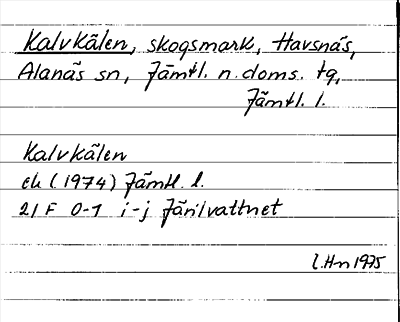 Kalvkälen, skogsmark, Havsnäs,
Alanäs sn, Jämtl. n. doms. tg,
Jämtl. l.
Kalvkälen
ek (1974) Jämtl. l.
21 F 0-1 i-j Järilvattnet
l.Hn 1975